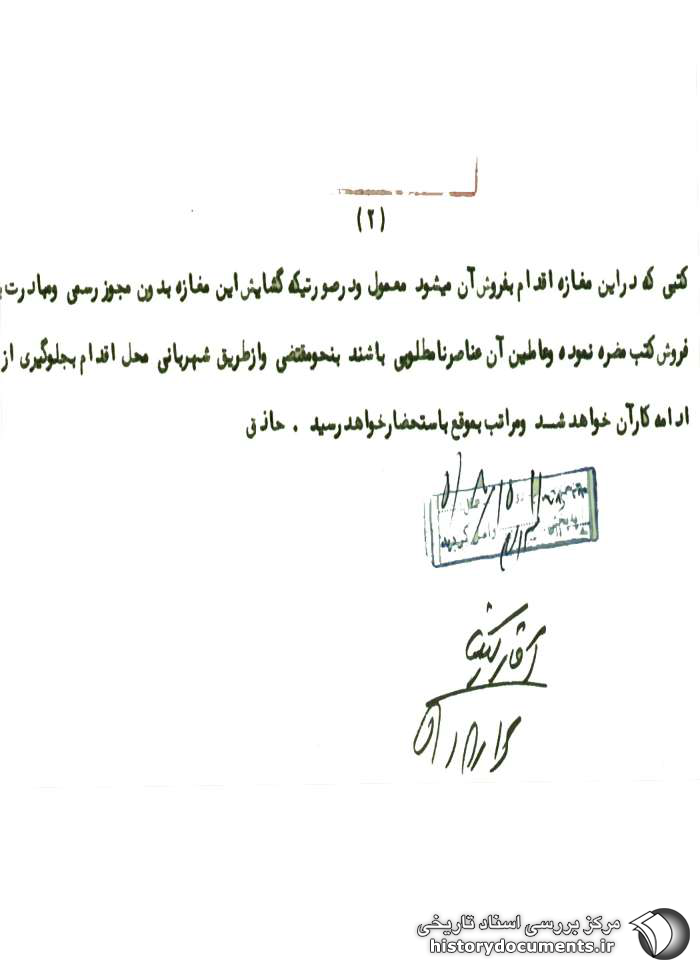 (۲)
کتبی که دراین مغازه اقدام بفروش آن میشود معمول ودرصورتیکه گشایش این مغازه بدون مجوز رسمی ومبادرت ب
فروش کتب مضره نموده وعاملین آن عناصرنامطلوبی باشند بنحومقتضی وازطریق شهربانی محل اقدام بجلوگیری از
ادامه کارآن خواهد شد ومراتب بموقع باستحضارخواهد رسید . حاذق
آقای
مرکز بررسی اسناد تاریخی
historydocuments.ir